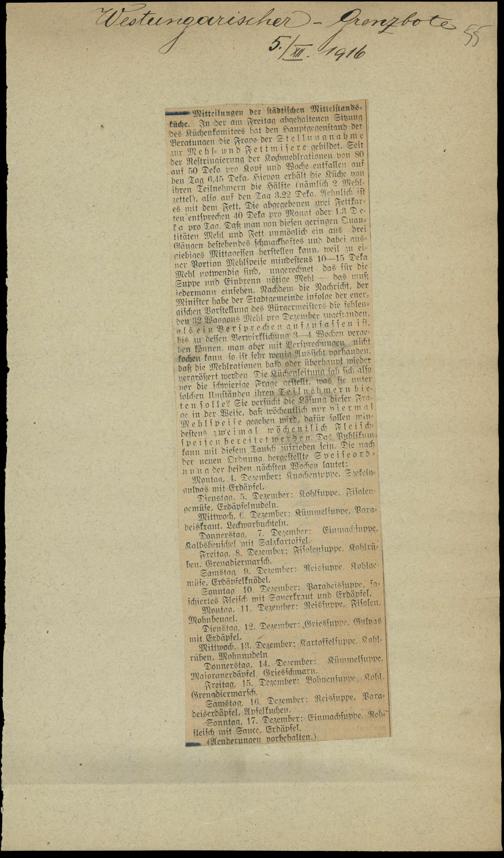 Westungarischer - Grenzbote 55
5./XII. 1916
Mitteilungen der städtischen Mittelstands-
küche. In der am Freitag abgehaltenen Sitzung
des Küchenkomitees hat den Hauptgegenstand der
Beratungen die Frage der Stellungnahme
zur Mehl- und Fettmisere gebildet. Seit
der Restringierung der Kochmehlrationen von 80
auf 50 Deka pro Kopf und Woche entfallen auf
den Tag 6.45 Deka. Hievon erhält die Küche von
ihren Teilnehmern die Hälfte (nämlich 2 Mehl-
zettel), also auf den Tag 3.22 Deka. Aehnlich ist
es mit dem Fett. Die abgegebenen zwei Fettkar-
ten entsprechen 40 Deka pro Monat oder 1.3 De-
ka pro Tag. Daß man von diesen geringen Quan-
titäten Mehl und Fett unmöglich ein aus drei
Gängen bestehendes schmackhaftes und dabei aus-
giebiges Mittagessen herstellen kann, weil zu ei-
ner Portion Mehlspeise mindestens 10—15 Deka
Mehl notwendig sind, ungerechnet das für die
Suppe und Einbrenn nötige Mehl — das muß
jedermann einsehen. Nachdem die Nachricht, der
Minister habe der Stadtgemeinde infolge der ener-
gischen Vorstellung des Bürgermeisters die fehlen-
den 32 Waggons Mehl pro Dezember zugestanden,
als ein Versprechen aufzufassen ist,
bis zu dessen Verwirklichung 3—4 Wochen verge-
hen können, man aber mit Versprechungen nicht
kochen kann, so ist sehr wenig Aussicht vorhanden,
daß die Mehlrationen bald oder überhaupt wieder
vergrößert werden. Die Küchenleitung sah sich also
vor die schwierige Frage gestellt, was sie unter
solchen Umständen ihren Teilnehmern bie-
ten solle? Sie versucht die Lösung dieser Fra-
ge in der Weise, daß wöchentlich nur viermal
Mehlspeise gegeben wird, dafür sollen min-
destens zweimal wöchentlich Fleisch-
speisen bereitet werden. Das Publikum
kann mit diesem Tausch zufrieden sein. Die nach
der neuen Ordnung hergestellte Speiseord-
nung der beiden nächsten Wochen lautet:
Montag, 4. Dezember: Knochensuppe, Szekely-
gulyas mit Erdäpfel.
Dienstag, 5. Dezember: Kohlsuppe, Fisolen-
gemüse, Erdäpfelnudeln.
Mittwoch, 6. Dezember: Kümmelsuppe, Para-
deiskraut, Leckwarbuchteln.
Donnerstag, 7. Dezember: Einmachsuppe,
Kalbsbeuschel mit Salzkartoffel.
Freitag, 8. Dezember: Fisolensuppe, Kohlrü-
ben, Grenadiermarsch.
Samstag, 9. Dezember: Reissuppe, Kohlge-
müse, Erdäpfelknödel.
Sonntag, 10. Dezember: Paradeissuppe, fa-
schiertes Fleisch mit Sauerkraut und Erdäpfel.
Montag, 11. Dezember: Reissuppe, Fisolen,
Mohnbeugel.
Dienstag, 12. Dezember: Griessuppe, Gulyas
mit Erdäpfel.
Mittwoch, 13. Dezember: Kartoffelsuppe, Kohl-
rüben, Mohnnudeln
Donnerstag, 14. Dezember: Kümmelsuppe,
Majoranerdäpfel, Griesschmarn.
Freitag, 15. Dezember: Bohnensuppe, Kohl,
Grenadiermarsch.
Samstag, 16. Dezember: Reissuppe, Para-
deiserdäpfel, Apfelkuchen.
Sonntag, 17. Dezember: Einmachsuppe,
fleisch mit Sauce, Erdäpfel.
(Aenderungen vorbehalten.)